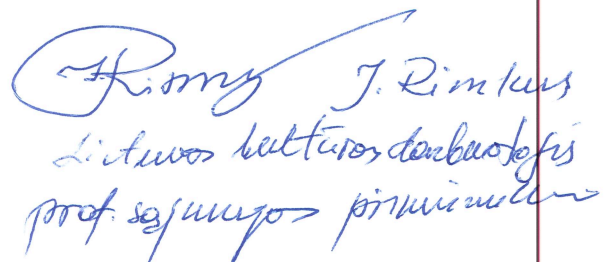 J. Rimkus
Lietuvos kultūros darbuotojų
prof. sąjungos pirmininkas